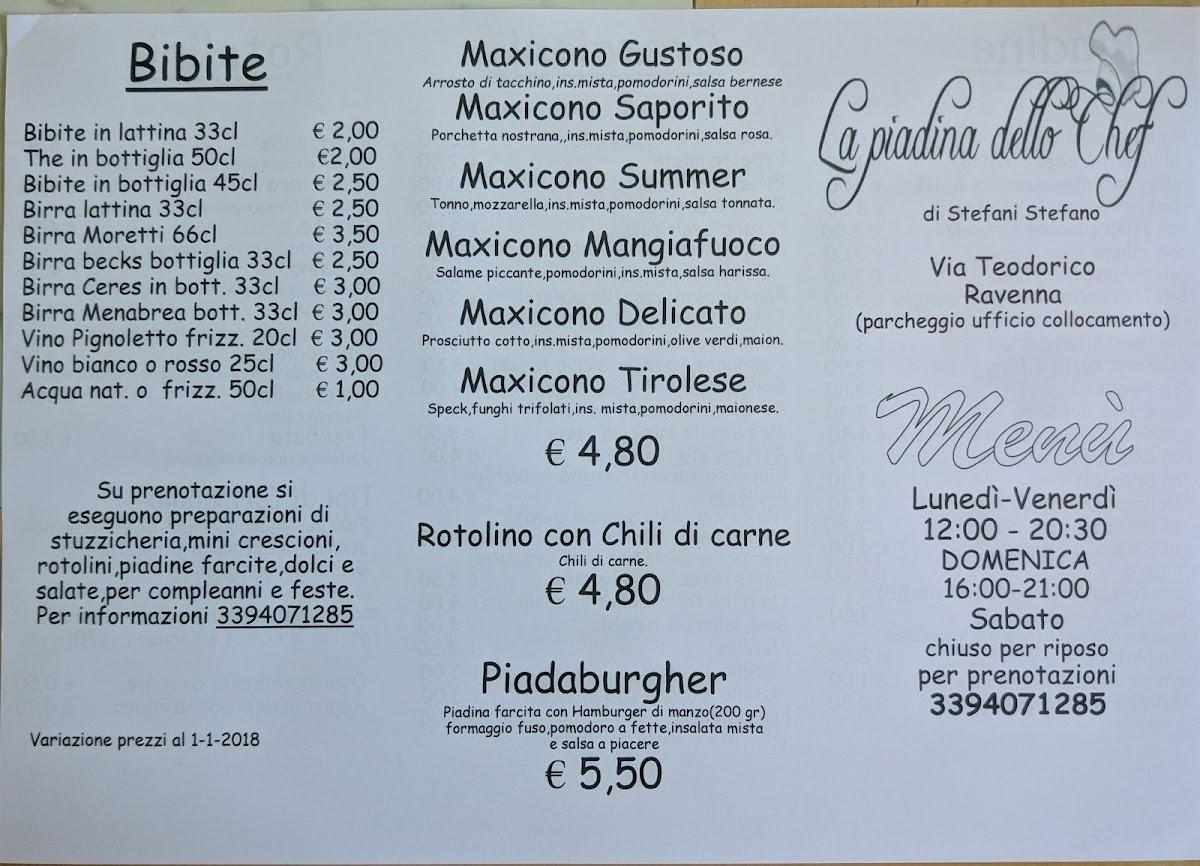 Bibite
Bibite in lattina 33cl € 2,00
The in bottiglia 50cl €2,00
Bibite in bottiglia 45cl € 2,50
Birra lattina 33cl € 2,50
Birra Moretti 66cl € 3,50
Birra becks bottiglia 33cl € 2,50
Birra Ceres in bott. 33cl € 3,00
Birra Menabrea bott. 33cl € 3,00
Vino Pignoletto frizz. 20cl € 3,00
Vino bianco o rosso 25cl € 3,00
Acqua nat. o frizz. 50cl € 1,00
Su prenotazione si
eseguono preparazioni di
stuzzicheria,mini crescioni,
rotolini,piadine farcite,dolci e
salate,per compleanni e feste.
Per informazioni 3394071285
Variazione prezzi al 1-1-2018
Maxicono Gustoso
Arrosto di tacchino,ins.mista,pomodorini,salsa bernese
Maxicono Saporito
Porchetta nostrana,,ins.mista,pomodorini,salsa rosa.
Maxicono Summer
Tonno,mozzarella,ins.mista,pomodorini,salsa tonnata.
Maxicono Mangiafuoco
Salame piccante,pomodorini,ins.mista,salsa harissa.
Maxicono Delicato
Prosciutto cotto,ins.mista,pomodorini,olive verdi,maion.
Maxicono Tirolese
Speck,funghi trifolati,ins. mista,pomodorini,maionese.
€ 4,80
Rotolino con Chili di carne
Chili di carne.
€ 4,80
Piadaburgher
Piadina farcita con Hamburger di manzo(200 gr)
formaggio fuso,pomodoro a fette,insalata mista
e salsa a piacere
€ 5,50
La piadina dello Chef
di Stefani Stefano
Via Teodorico
Ravenna
(parcheggio ufficio collocamento)
Menù
Lunedì-Venerdì
12:00 - 20:30
DOMENICA
16:00-21:00
Sabato
chiuso per riposo
per prenotazioni
3394071285